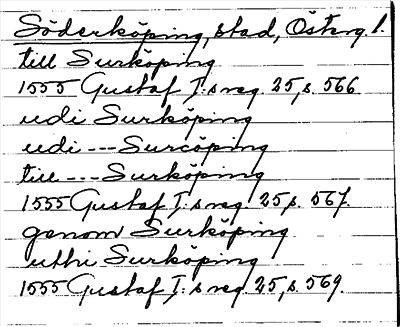 Söderköping, stad, Österg. l.
till Surköping
1555 Gustaf I:s reg. 25, s. 566.
udi Surköping
udi --- Surcöping
till --- Surköping
1555 Gustaf I:s reg. 25, s. 567.
genom Surköping
uthi Surköping
1555 Gustaf I:s reg. 25, s. 569.